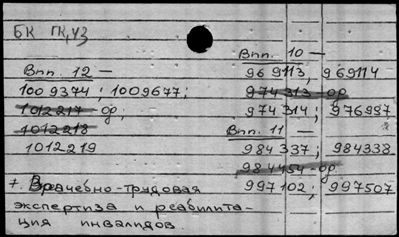 БК ГК, УЗ
Вып. 12 —
1009374; 1009677;
1012217 ор,
1012218
1012219
Вып. 10 —
969113, 969114
974313 ор
974314; 976937
Вып. 11 —
984337; 984338
984454-ор
997102; 997507
7. Врачебно-трудовая
экспертиза и реабилита-
ция инвалидов.